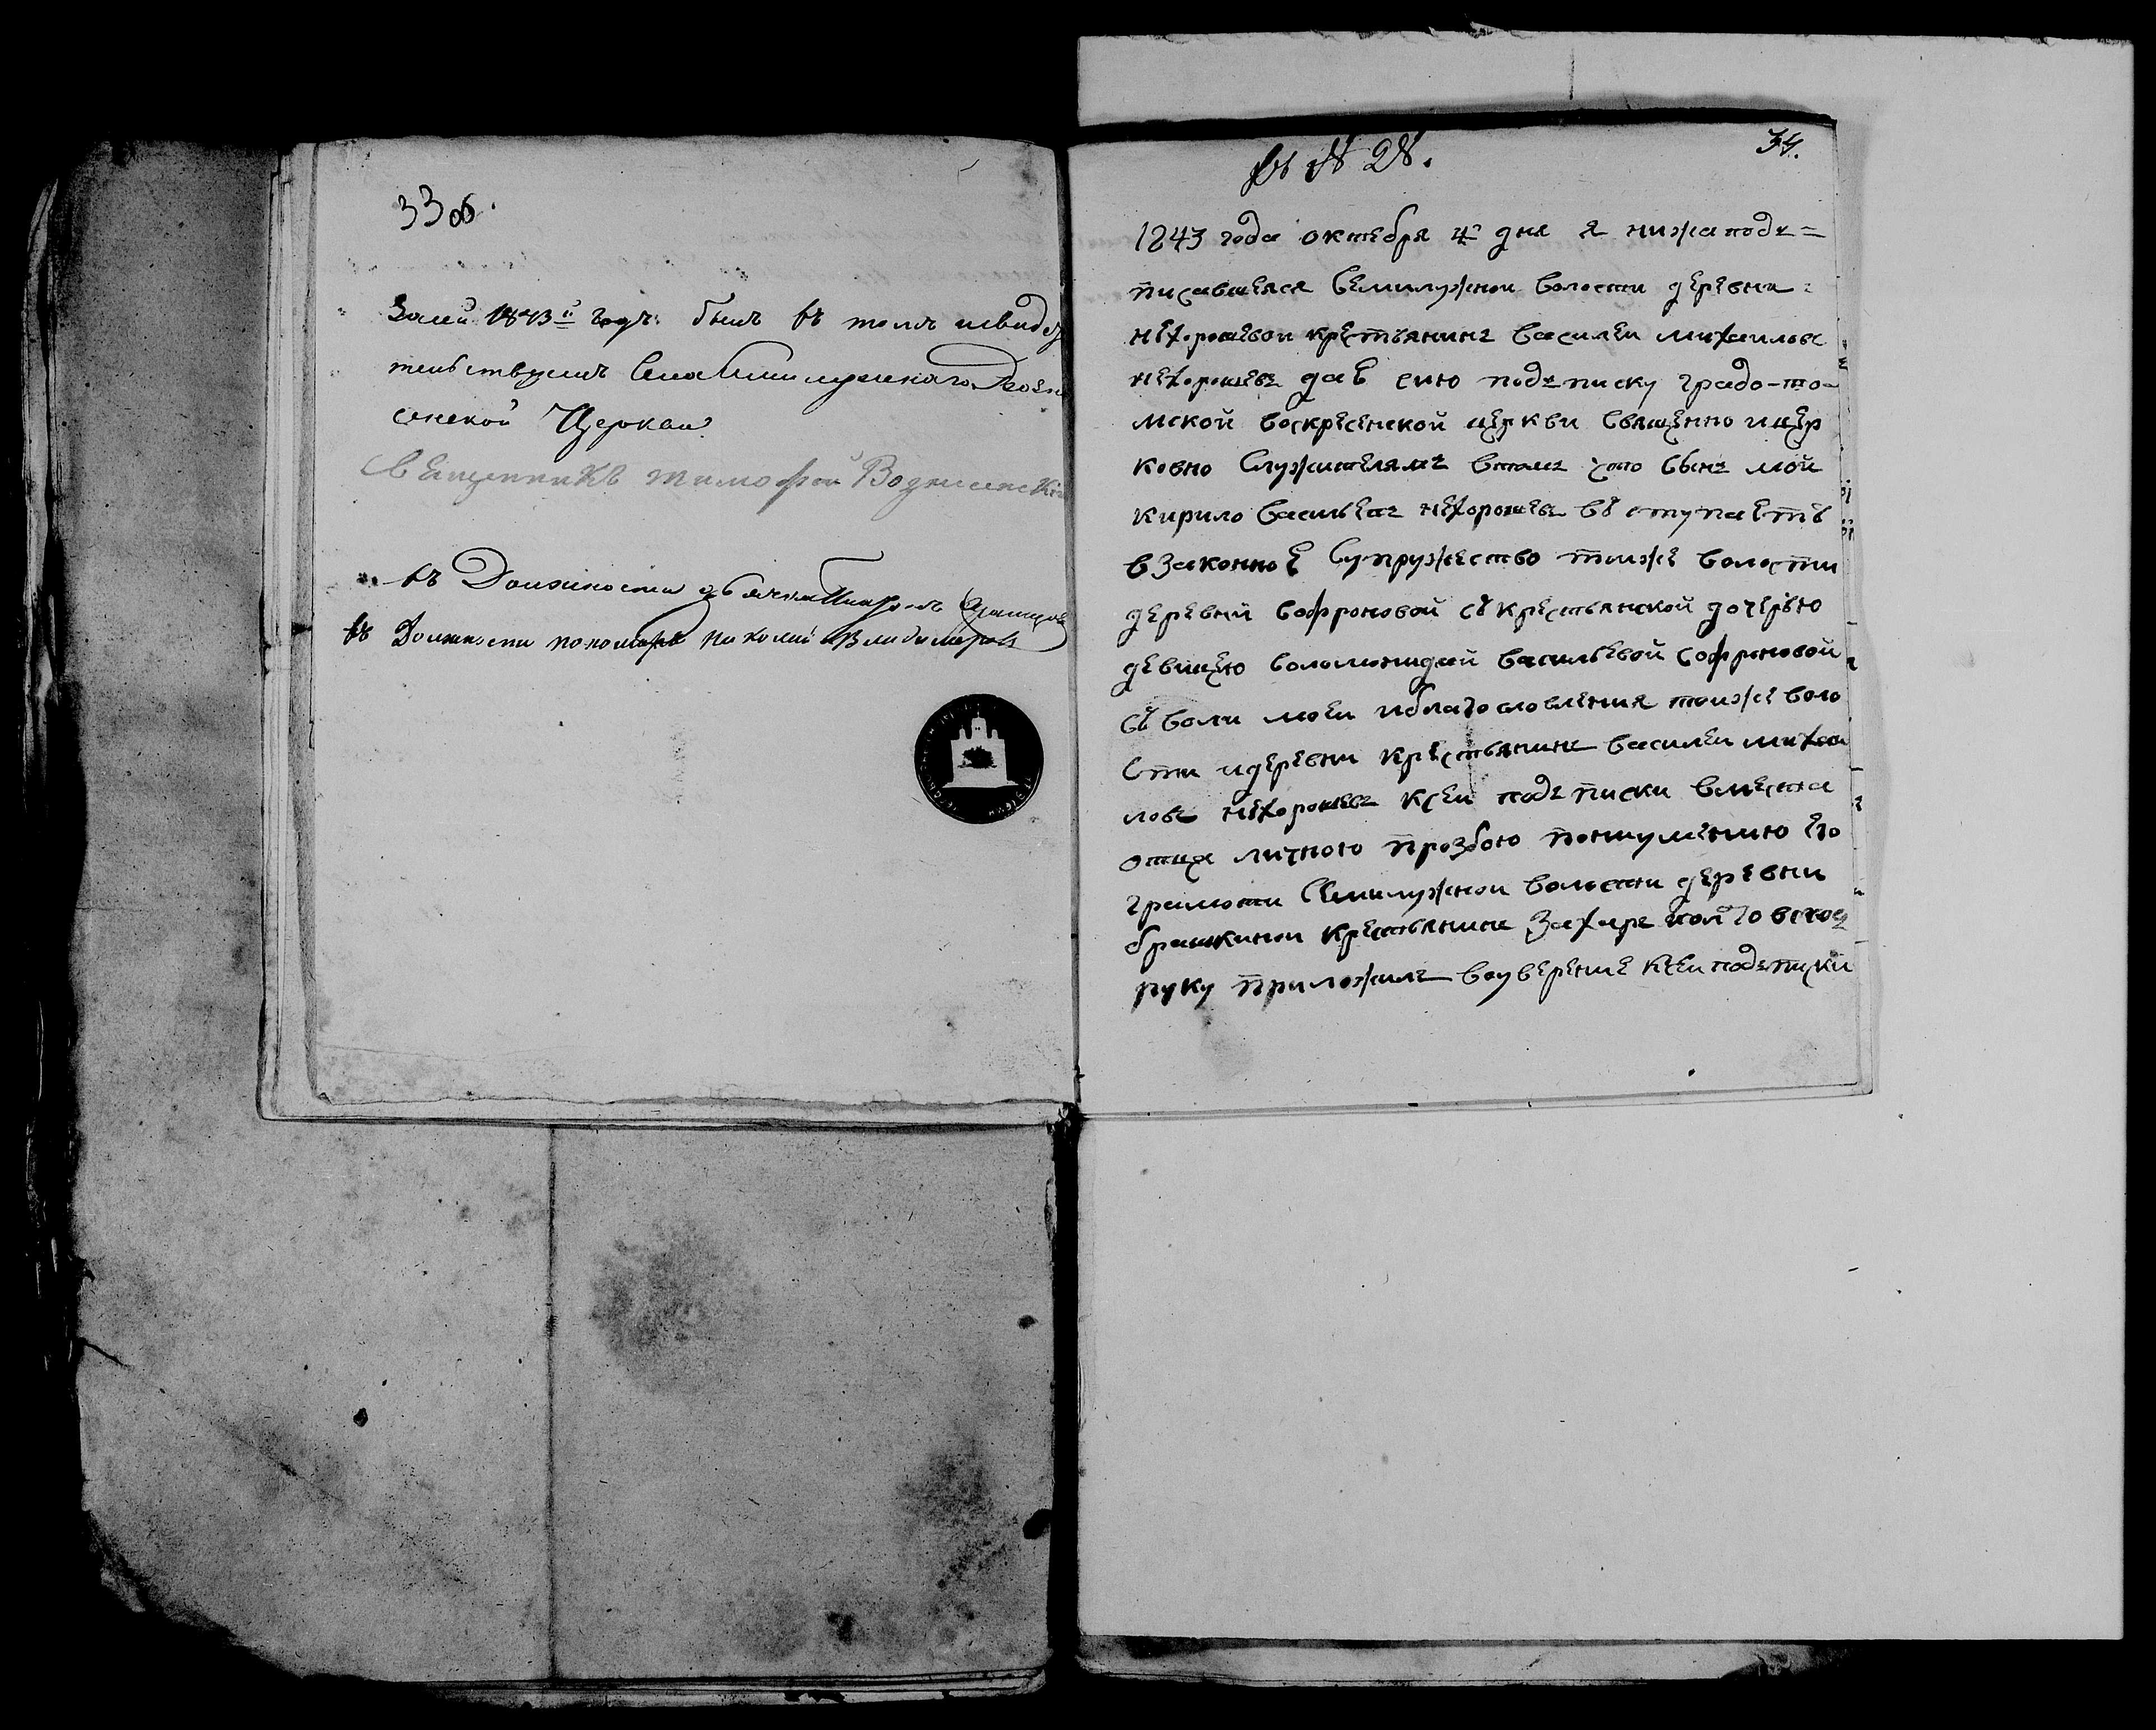 33 об.
Засей 1843й годъ былъ въ томъ исвидѣ
тельствуемъ Села Семилужнаго Возне
сенской Церкви
Священникъ Тимофей Вознесенскій
въ Должности дьячка
въ Должности пономаря Николай Владимировъ
къ № 28.
34.
1843 года октебря 4го дня я нижаподъ=
писавшеяся Семилужнои волости деревни
нехорошевои крестьянинъ василеи михаиловъ
нехорошевъ даю сию подъписку градо-то-
мской воскресенской церкви священно ицер
ковно служителямъ втомъ что сынъ мой
кирило васильевъ нехорошевъ въступаетъ
взаконное супружество тоиже волости
деревни софроновой съкрестьянской дочерью
девицею соломонидой васильевой софроновой
съволи моеи иблагословления тоиже воло
сти идеревни крестьянинъ василеи михаи
ловъ нехорошевъ ксеи подъписки вместа
отца личною прозбою понеумению его
грамоти Семилужнои волости деревни
брашкинои крестьянинъ Захаръ
руку приложилъ воуверение ксеи подъписки